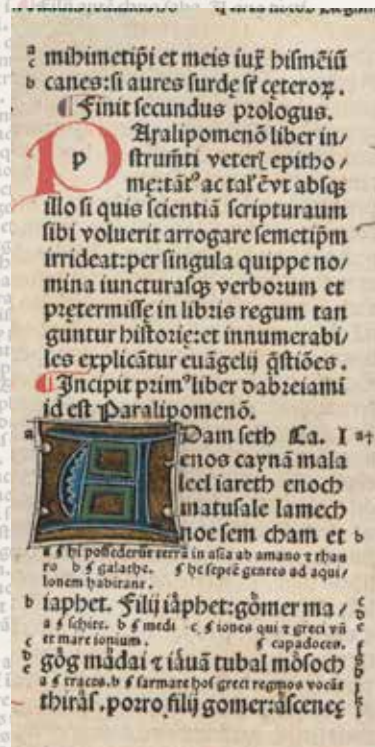 mihimetip̄i et meis iux̄ hismēiū
canes:si aures surdę st̄ cęteroꝝ.
Finit secundus prologus.
PAralipomenō liber in/
strum̄ti veteris epitho/
mę:tātꝰ ac tal' ē vt absqꝫ
illo si quis scientiā scripturaum
sibi voluerit arrogare semetip̄m
irrideat:per singula quippe no/
mina iuncturasqꝫ verborum et
prętermissę in libris regum tan
guntur historię:et innumerabi/
les explicātur euāgelij q̄stiōes.
Incipit primꝰ liber dabreiami
id est Paralipomenō.
ADam seth Ca. I
enos caynā mala
leel iareth enoch
matusale lamech
noe sem cham et
a § hi possederūt terrā in asia ab amano ⁊ thau
ro b § galathe. § he septē gentes ad aqui/
lonem habitant.
iaphet. Filij iāphet:gōmer ma/
a § schite. b § medi c § iones qui ⁊ greci vn̄
et mare ionium. § capadoces.
gōg mādai ⁊ iāuā tubal mōsoch
a § traces. b § sarmate hos greci vocāt
thirās. porro filij gomer:āscenez